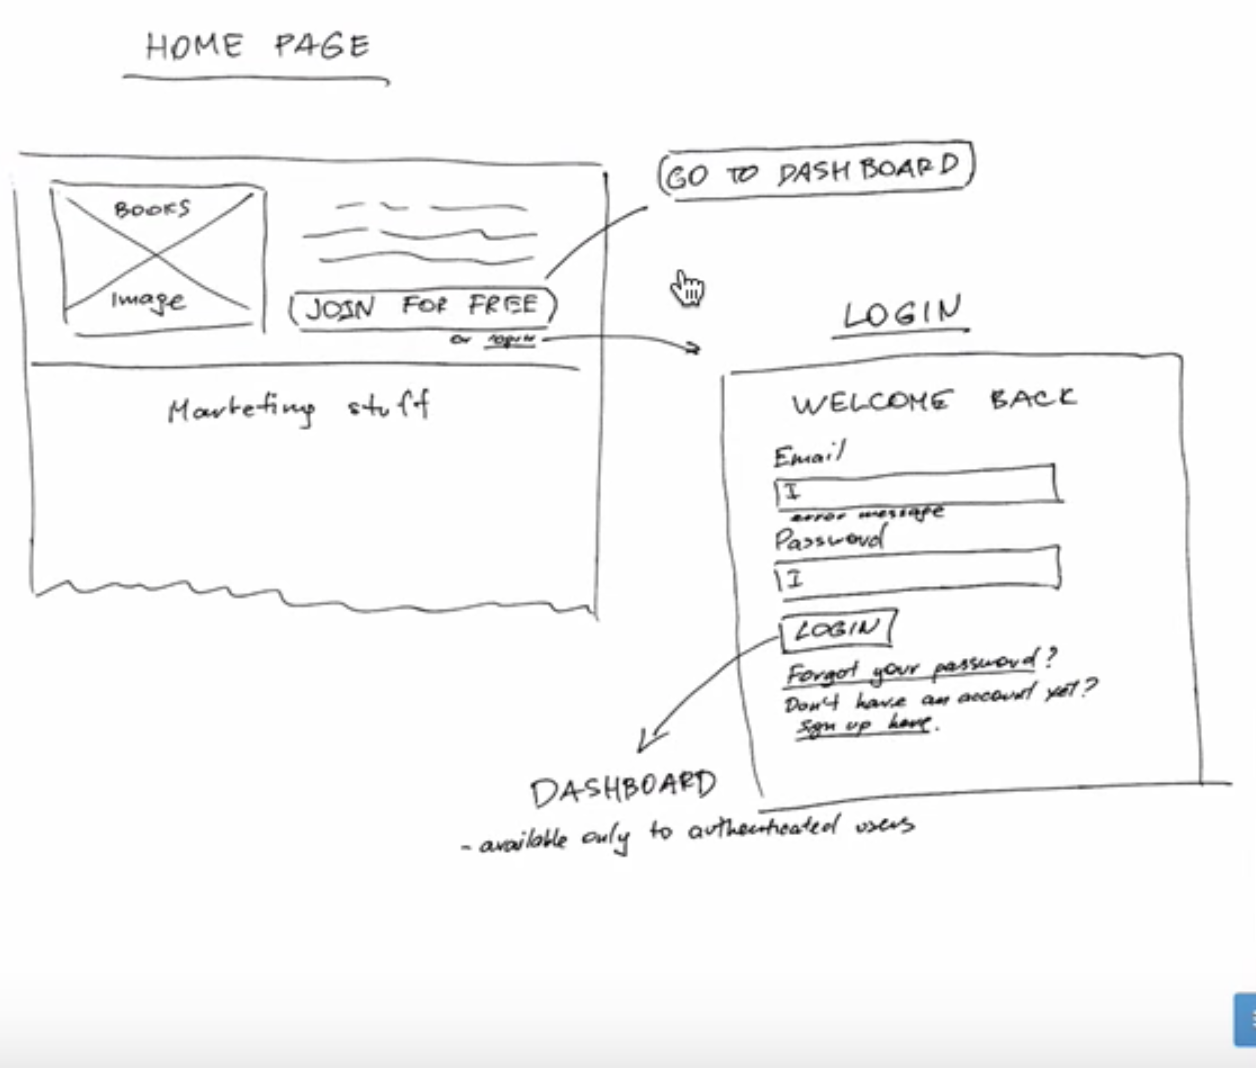 HOME PAGE
GO TO DASHBOARD
BOOKS
Image
JOIN FOR FREE
or login
Marketing stuff
LOGIN
WELCOME BACK
Email
I
error message
Password
I
LOGIN
Forgot your password?
Don't have an account yet?
Sign up here.
DASHBOARD
- available only to authenticated users